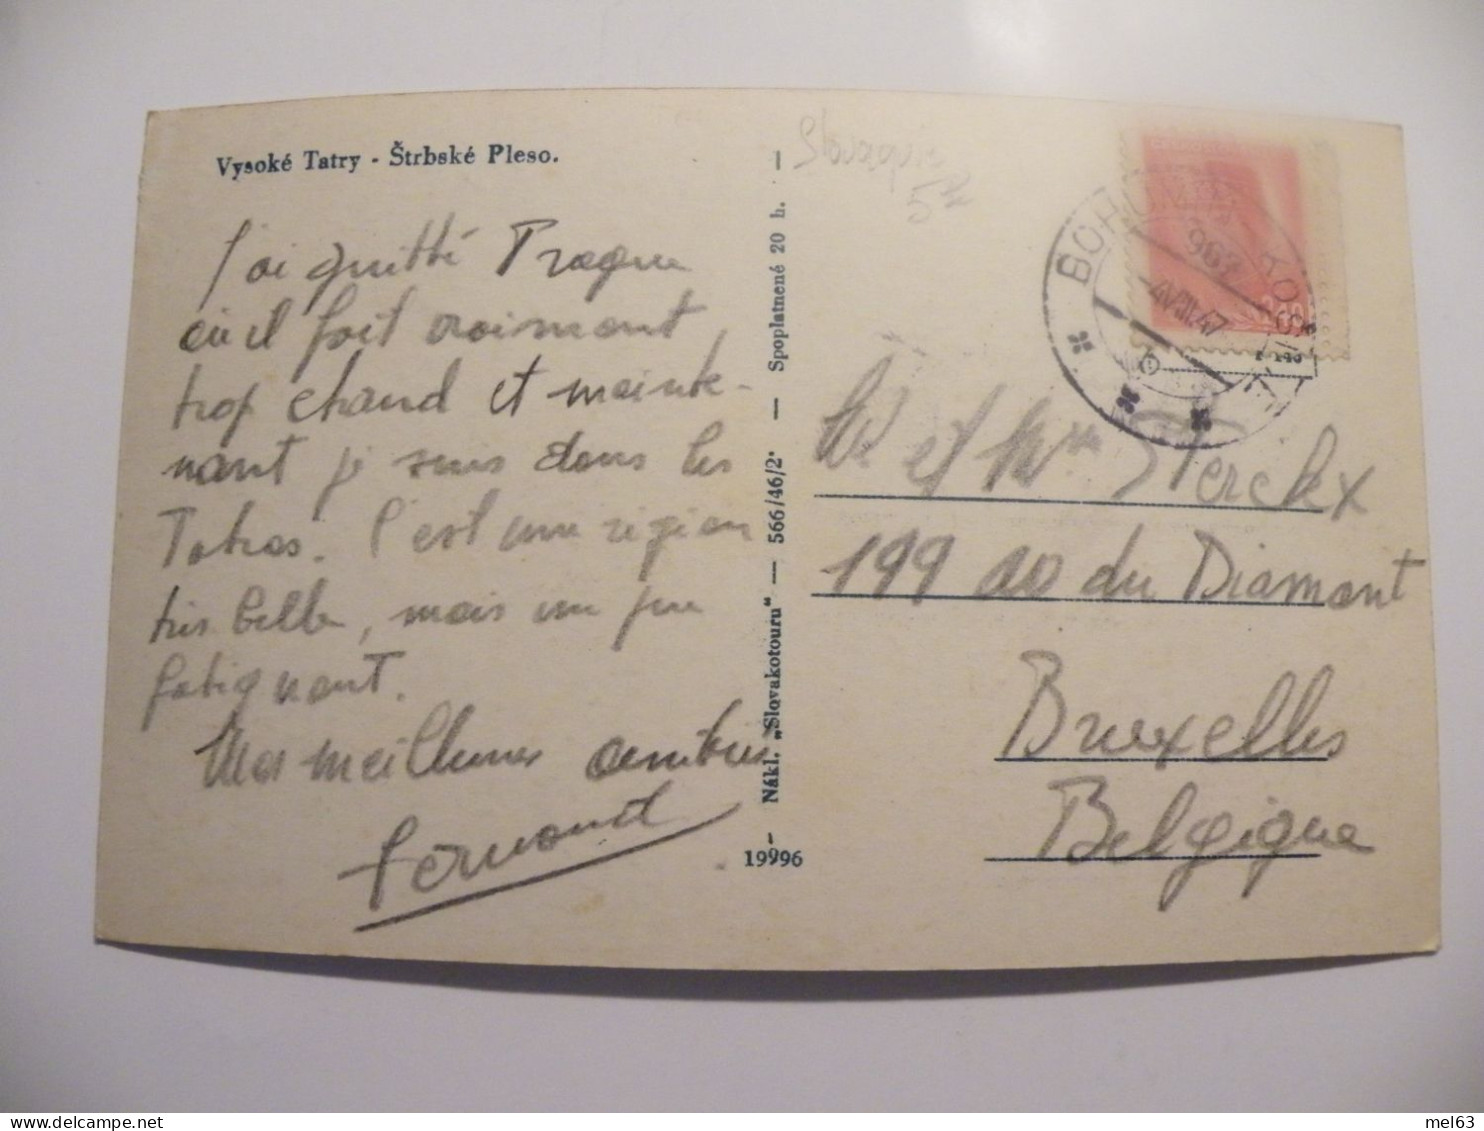 Vysoké Tatry - Štrbské Pleso.
Slovaquie
J'ai quitté Prague
où il fait vraiment
trop chaud et mainte-
nant je suis dans les
Tatras. C'est une région
très belle, mais un peu
fatiguant.
Mes meilleures amitiés
Fernand
Nákl. „Slovakotouru“ — 566/46/2· — Spoplatnené 20 h. —
19996
967
-4.VIII.47
M. et Mme Sterckx
199 av du Diamant
Bruxelles
Belgique
mel63